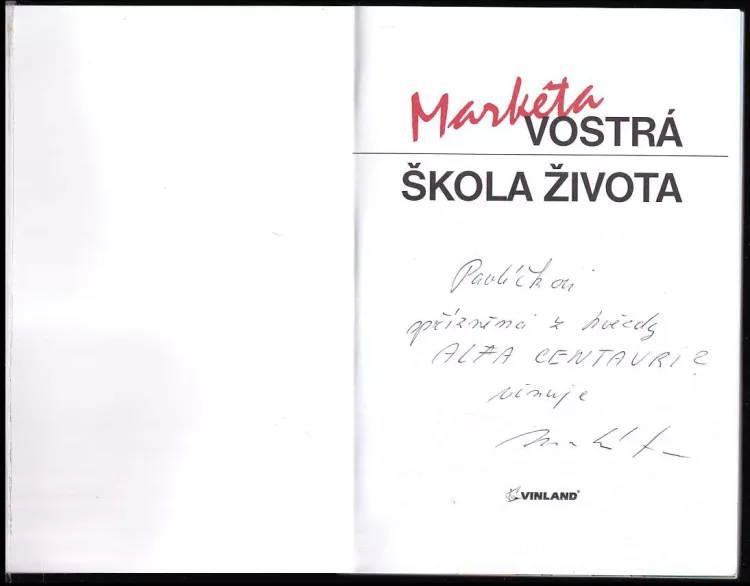 Markéta
VOSTRÁ
ŠKOLA ŽIVOTA
Pavlíčkovi
spřízněná z hvězdy
ALFA CENTAURI?
věnuje
Markéta
VINLAND®